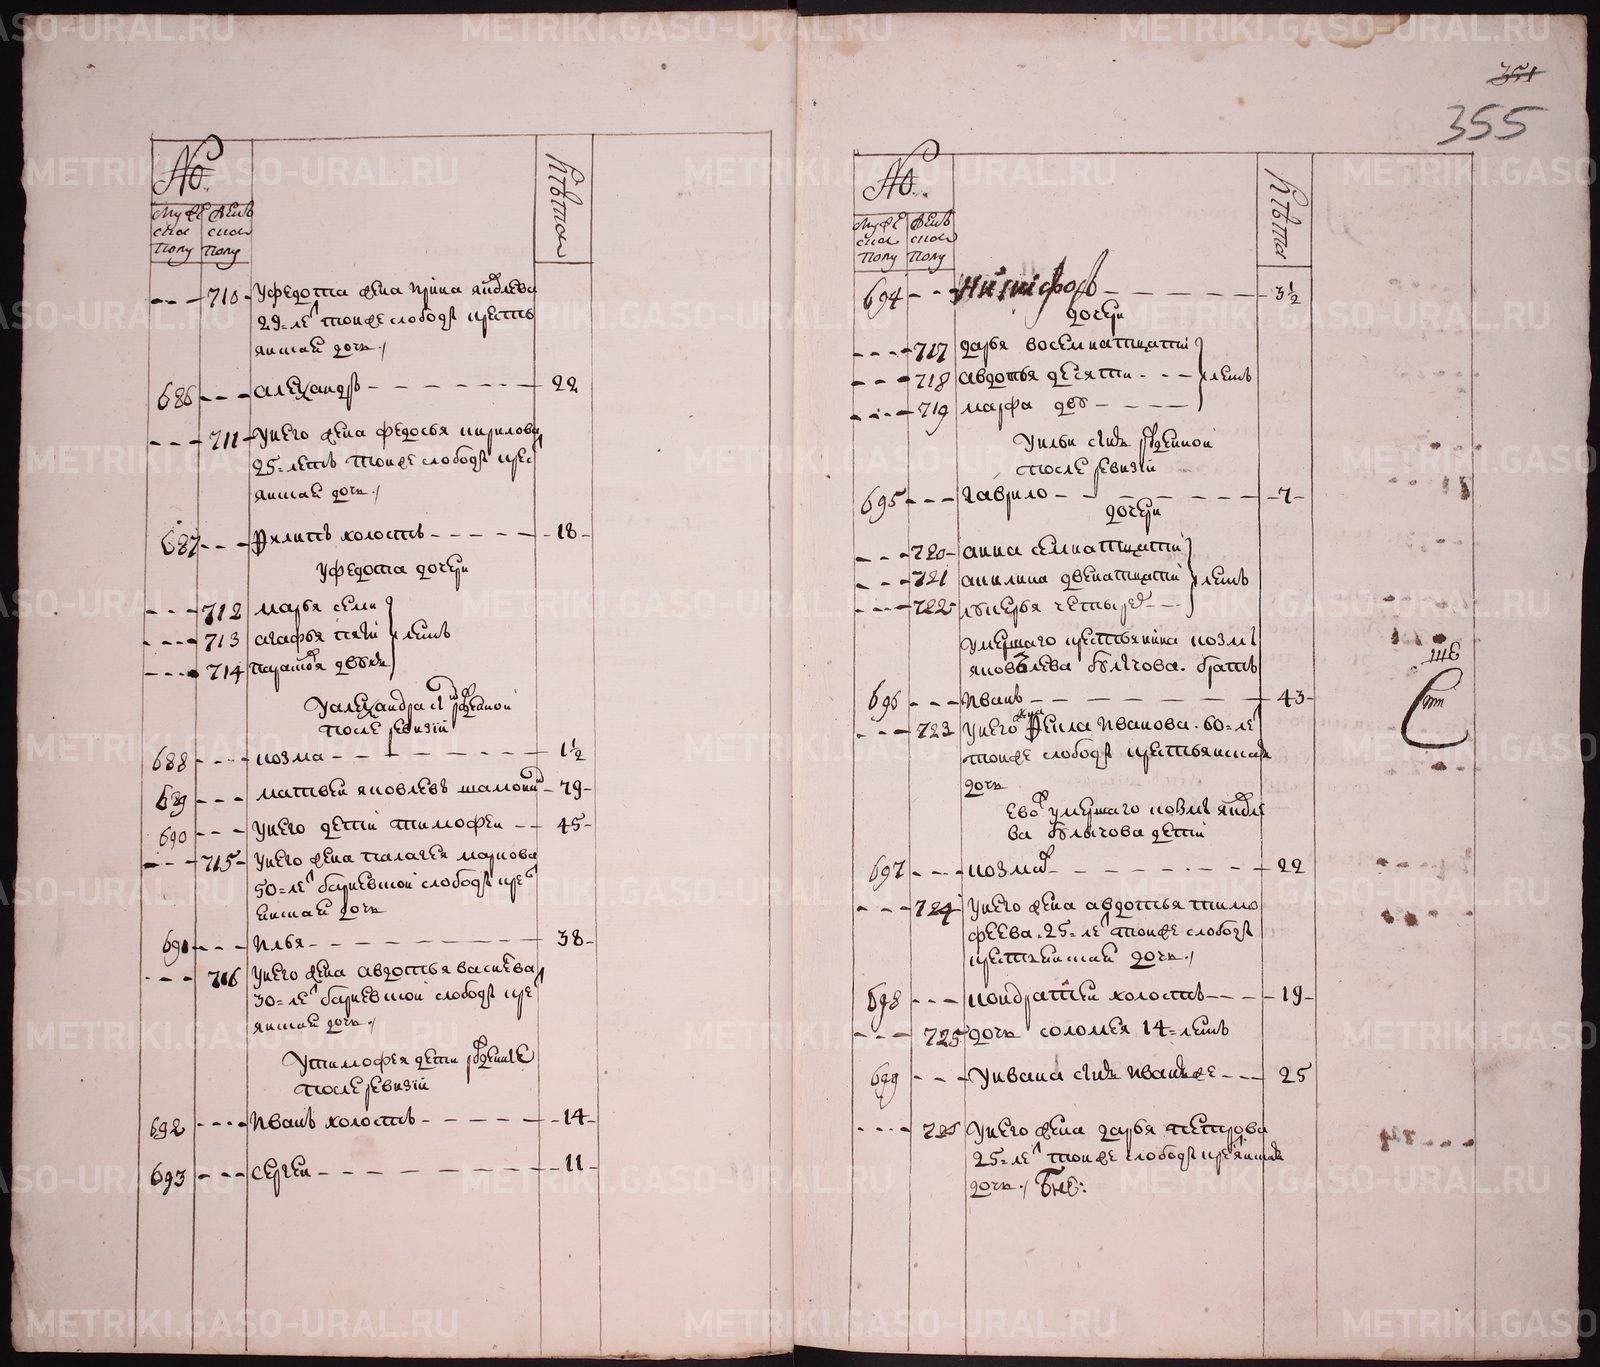 351
355
№
мужеска полу
женска полу
лѣта
710 уфедота жена ирина яковлева
29 = ле тоиже слободы крестья
янская дочь
686 александръ 22
711 у него жена федосья кирилова
25 = летъ тоиже слободы крес
янская дочь
687 филипъ холостъ 18
уфедота дочери
712 марья семи
713 агафья пяти летъ
714 
уалександра сынъ рожденной
после ревизіи
688 козма 1½
689 матвеи яковлевъ 79
690 у него дети тимофеи 45
715 у него жена палагея маркова
50 = ле слободы кре
янская дочь
691 илья 38
716 у него жена авдотья
30 = ле слободы кре
янская дочь
утимофея дети рожденые
после ревизіи
692 иванъ холостъ 14
693 сергеи 11
№
мужеска полу
женска полу
лѣта
694 никифоръ 3½
дочери
717 дарья восемнатцати
718 авдотья десяти летъ
719 марфа дву
уильи сынъ рожденной
после ревизіи
695 гаврило 7
дочери
720 анна семнатцати
721 акилина двенатцати летъ
722 лукерья четырех
умершаго крестьянина козмы
яковлева бычкова братъ
696 иванъ 43
723 у него жена фекла иванова 60 = ле
тоиже слободы крестьянская
дочь
ево умершаго козмы яковле
ва бычкова дети
697 козма 22
724 у него жена авдотья тимо
феева 25 = ле тоиже слободы
крестьянская дочь
698 кондратеи холостъ 19
725 дочь соломея 14 = летъ
699 уивана сынъ иванже 25
726 у него жена дарья петрова
25 = ле тоиже слободы крестьянская
дочь
METRIKI.GASO-URAL.RU